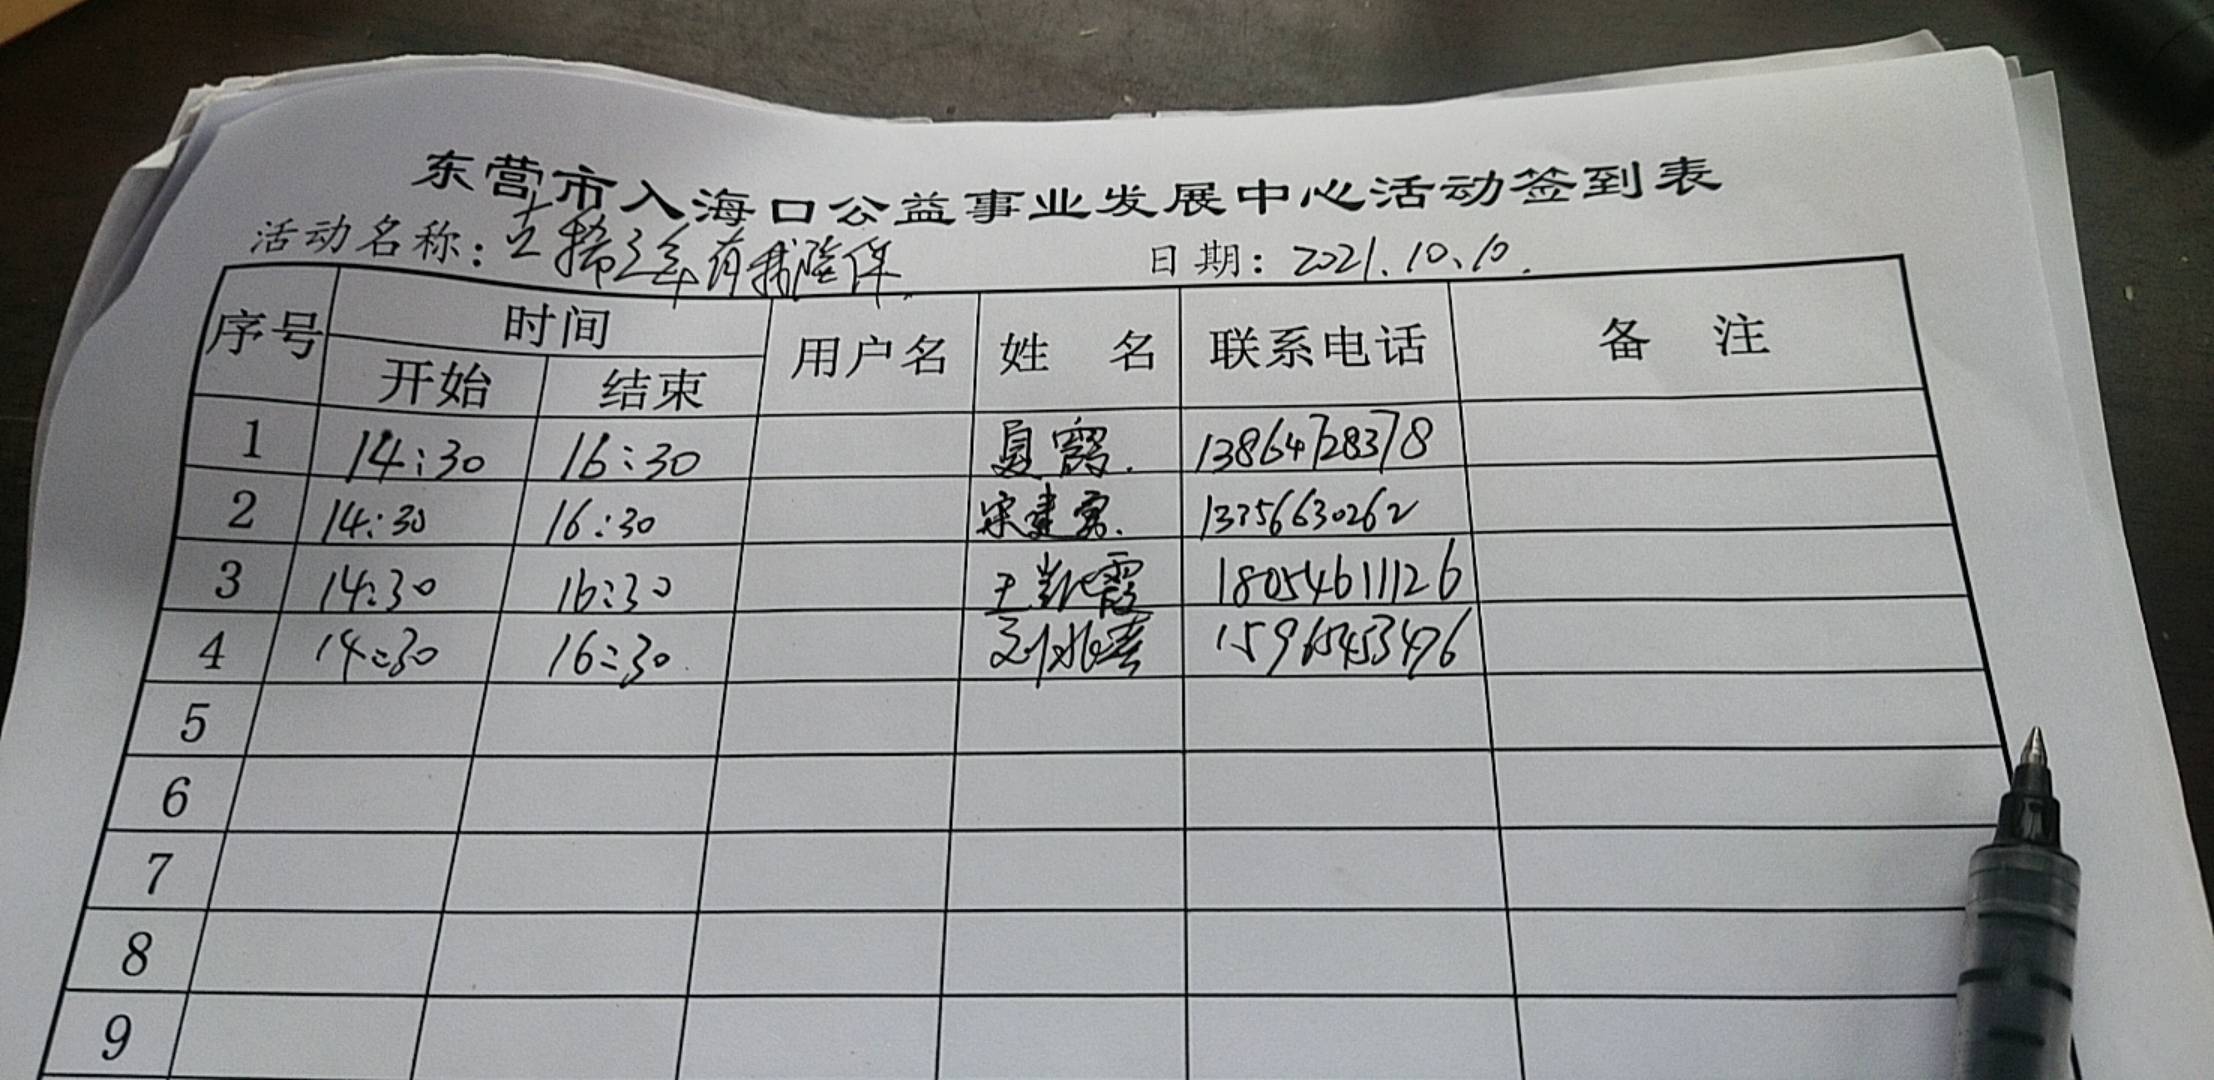 东营市入海口公益事业发展中心活动签到表
活动名称：古稀之年有我陪伴 日期：2021.10.10.
序号 时间 用户名 姓 名 联系电话 备 注
开始 结束
1 14:30 16:30 夏霞. 13864728378
2 14:30 16:30 宋建 13356630262
3 14:30 16:30 王凯霞 18054611126
4 14:30 16:30 刘 15965453476
5
6
7
8
9